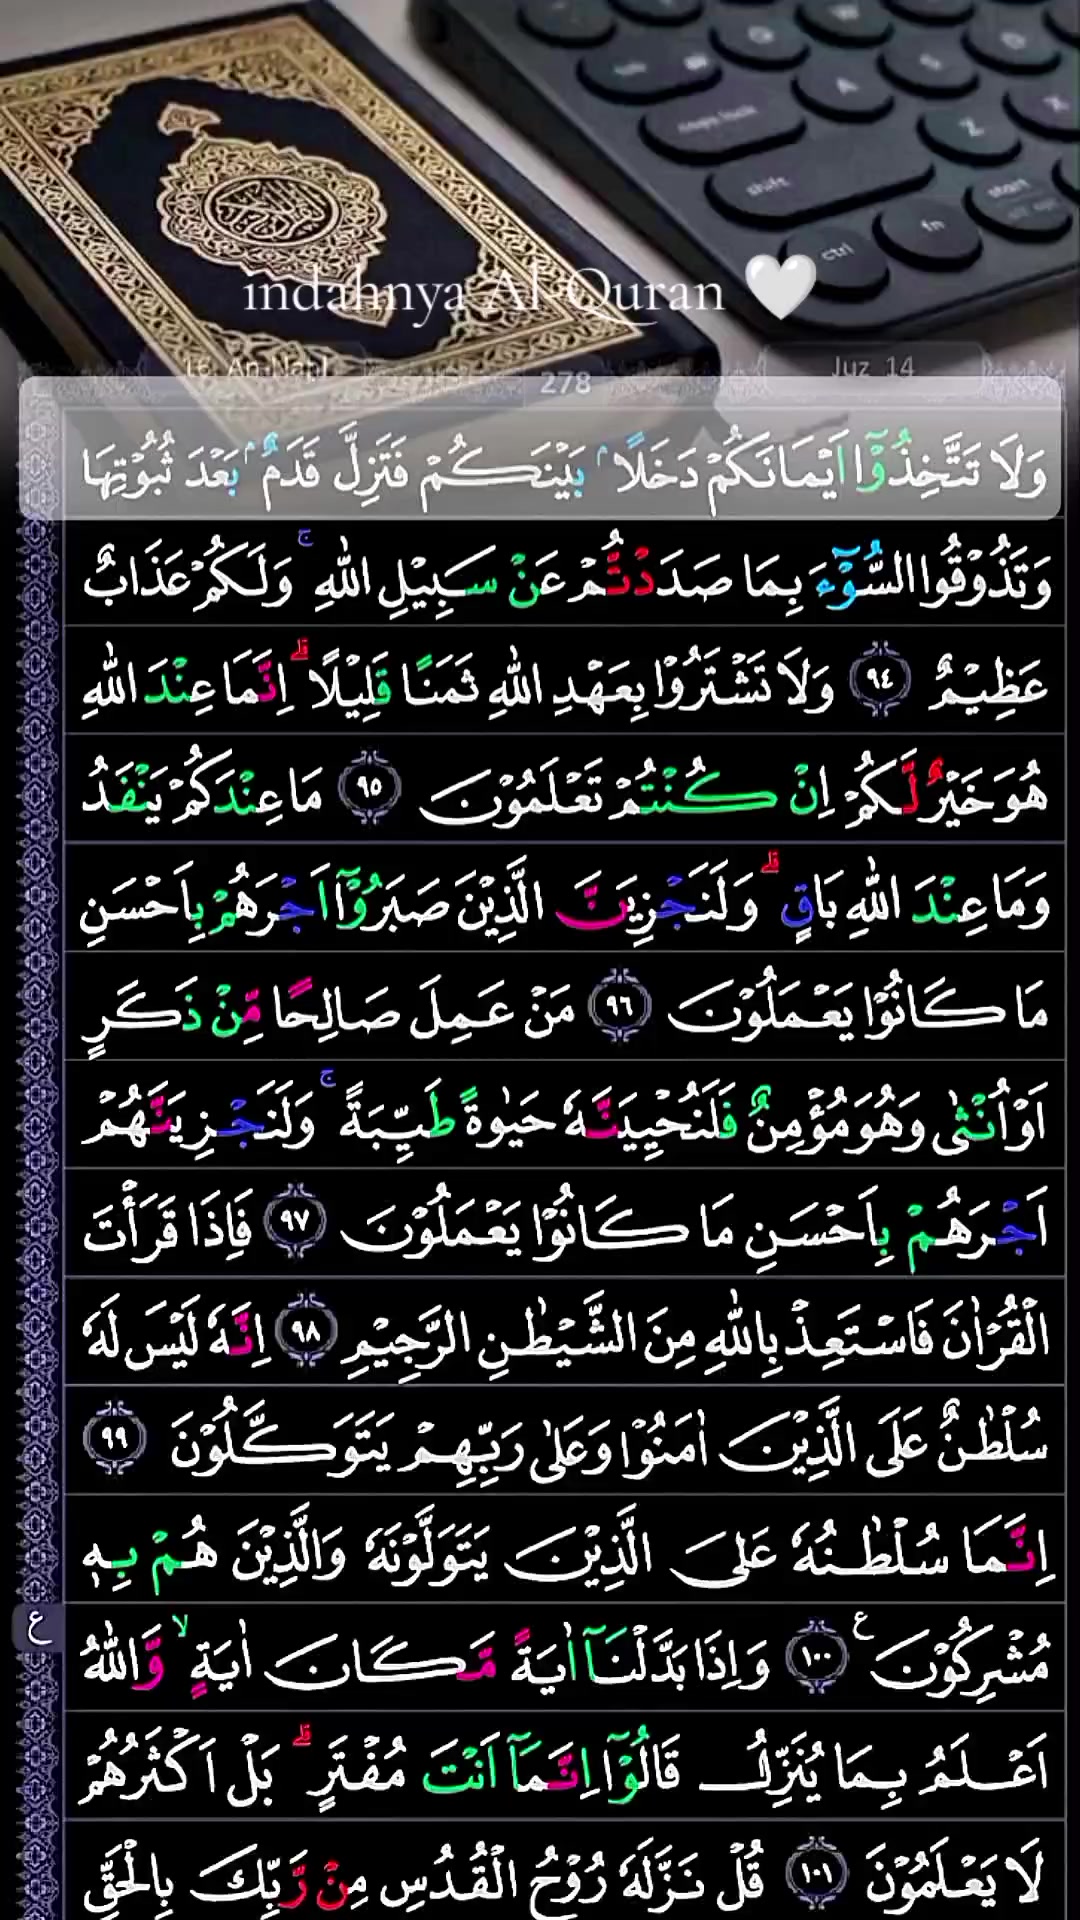 tab
W
Q
A
S
caps lock
Z
X
shift
fn
start
ctrl
indahnya Al-Quran 🤍
16. An-Naḥl
278
Juz 14
وَلَا تَتَّخِذُوْٓا اَيْمَانَكُمْ دَخَلًا ۢ بَيْنَكُمْ فَتَزِلَّ قَدَمٌ ۢ بَعْدَ ثُبُوْتِهَا
وَتَذُوْقُوا السُّوْۤءَ بِمَا صَدَدْتُّمْ عَنْ سَبِيْلِ اللّٰهِ ۚ وَلَكُمْ عَذَابٌ
عَظِيْمٌ ٩٤ وَلَا تَشْتَرُوْا بِعَهْدِ اللّٰهِ ثَمَنًا قَلِيْلًا ۗ اِنَّمَا عِنْدَ اللّٰهِ
هُوَ خَيْرٌ لَّكُمْ اِنْ كُنْتُمْ تَعْلَمُوْنَ ٩٥ مَا عِنْدَكُمْ يَنْفَدُ
وَمَا عِنْدَ اللّٰهِ بَاقٍ ۗ وَلَنَجْزِيَنَّ الَّذِيْنَ صَبَرُوْٓا اَجْرَهُمْ بِاَحْسَنِ
مَا كَانُوْا يَعْمَلُوْنَ ٩٦ مَنْ عَمِلَ صَالِحًا مِّنْ ذَكَرٍ
اَوْ اُنْثٰى وَهُوَ مُؤْمِنٌ فَلَنُحْيِيَنَّهٗ حَيٰوةً طَيِّبَةً ۚ وَلَنَجْزِيَنَّهُمْ
اَجْرَهُمْ بِاَحْسَنِ مَا كَانُوْا يَعْمَلُوْنَ ٩٧ فَاِذَا قَرَأْتَ
الْقُرْاٰنَ فَاسْتَعِذْ بِاللّٰهِ مِنَ الشَّيْطٰنِ الرَّجِيْمِ ٩٨ اِنَّهٗ لَيْسَ لَهٗ
سُلْطٰنٌ عَلَى الَّذِيْنَ اٰمَنُوْا وَعَلٰى رَبِّهِمْ يَتَوَكَّلُوْنَ ٩٩
اِنَّمَا سُلْطٰنُهٗ عَلَى الَّذِيْنَ يَتَوَلَّوْنَهٗ وَالَّذِيْنَ هُمْ بِهٖ
مُشْرِكُوْنَ ࣖ ١٠٠ وَاِذَا بَدَّلْنَآ اٰيَةً مَّكَانَ اٰيَةٍ ۙ وَّاللّٰهُ
ع
اَعْلَمُ بِمَا يُنَزِّلُ قَالُوْٓا اِنَّمَآ اَنْتَ مُفْتَرٍ ۗ بَلْ اَكْثَرُهُمْ
لَا يَعْلَمُوْنَ ١٠١ قُلْ نَزَّلَهٗ رُوْحُ الْقُدُسِ مِنْ رَّبِّكَ بِالْحَقِّ